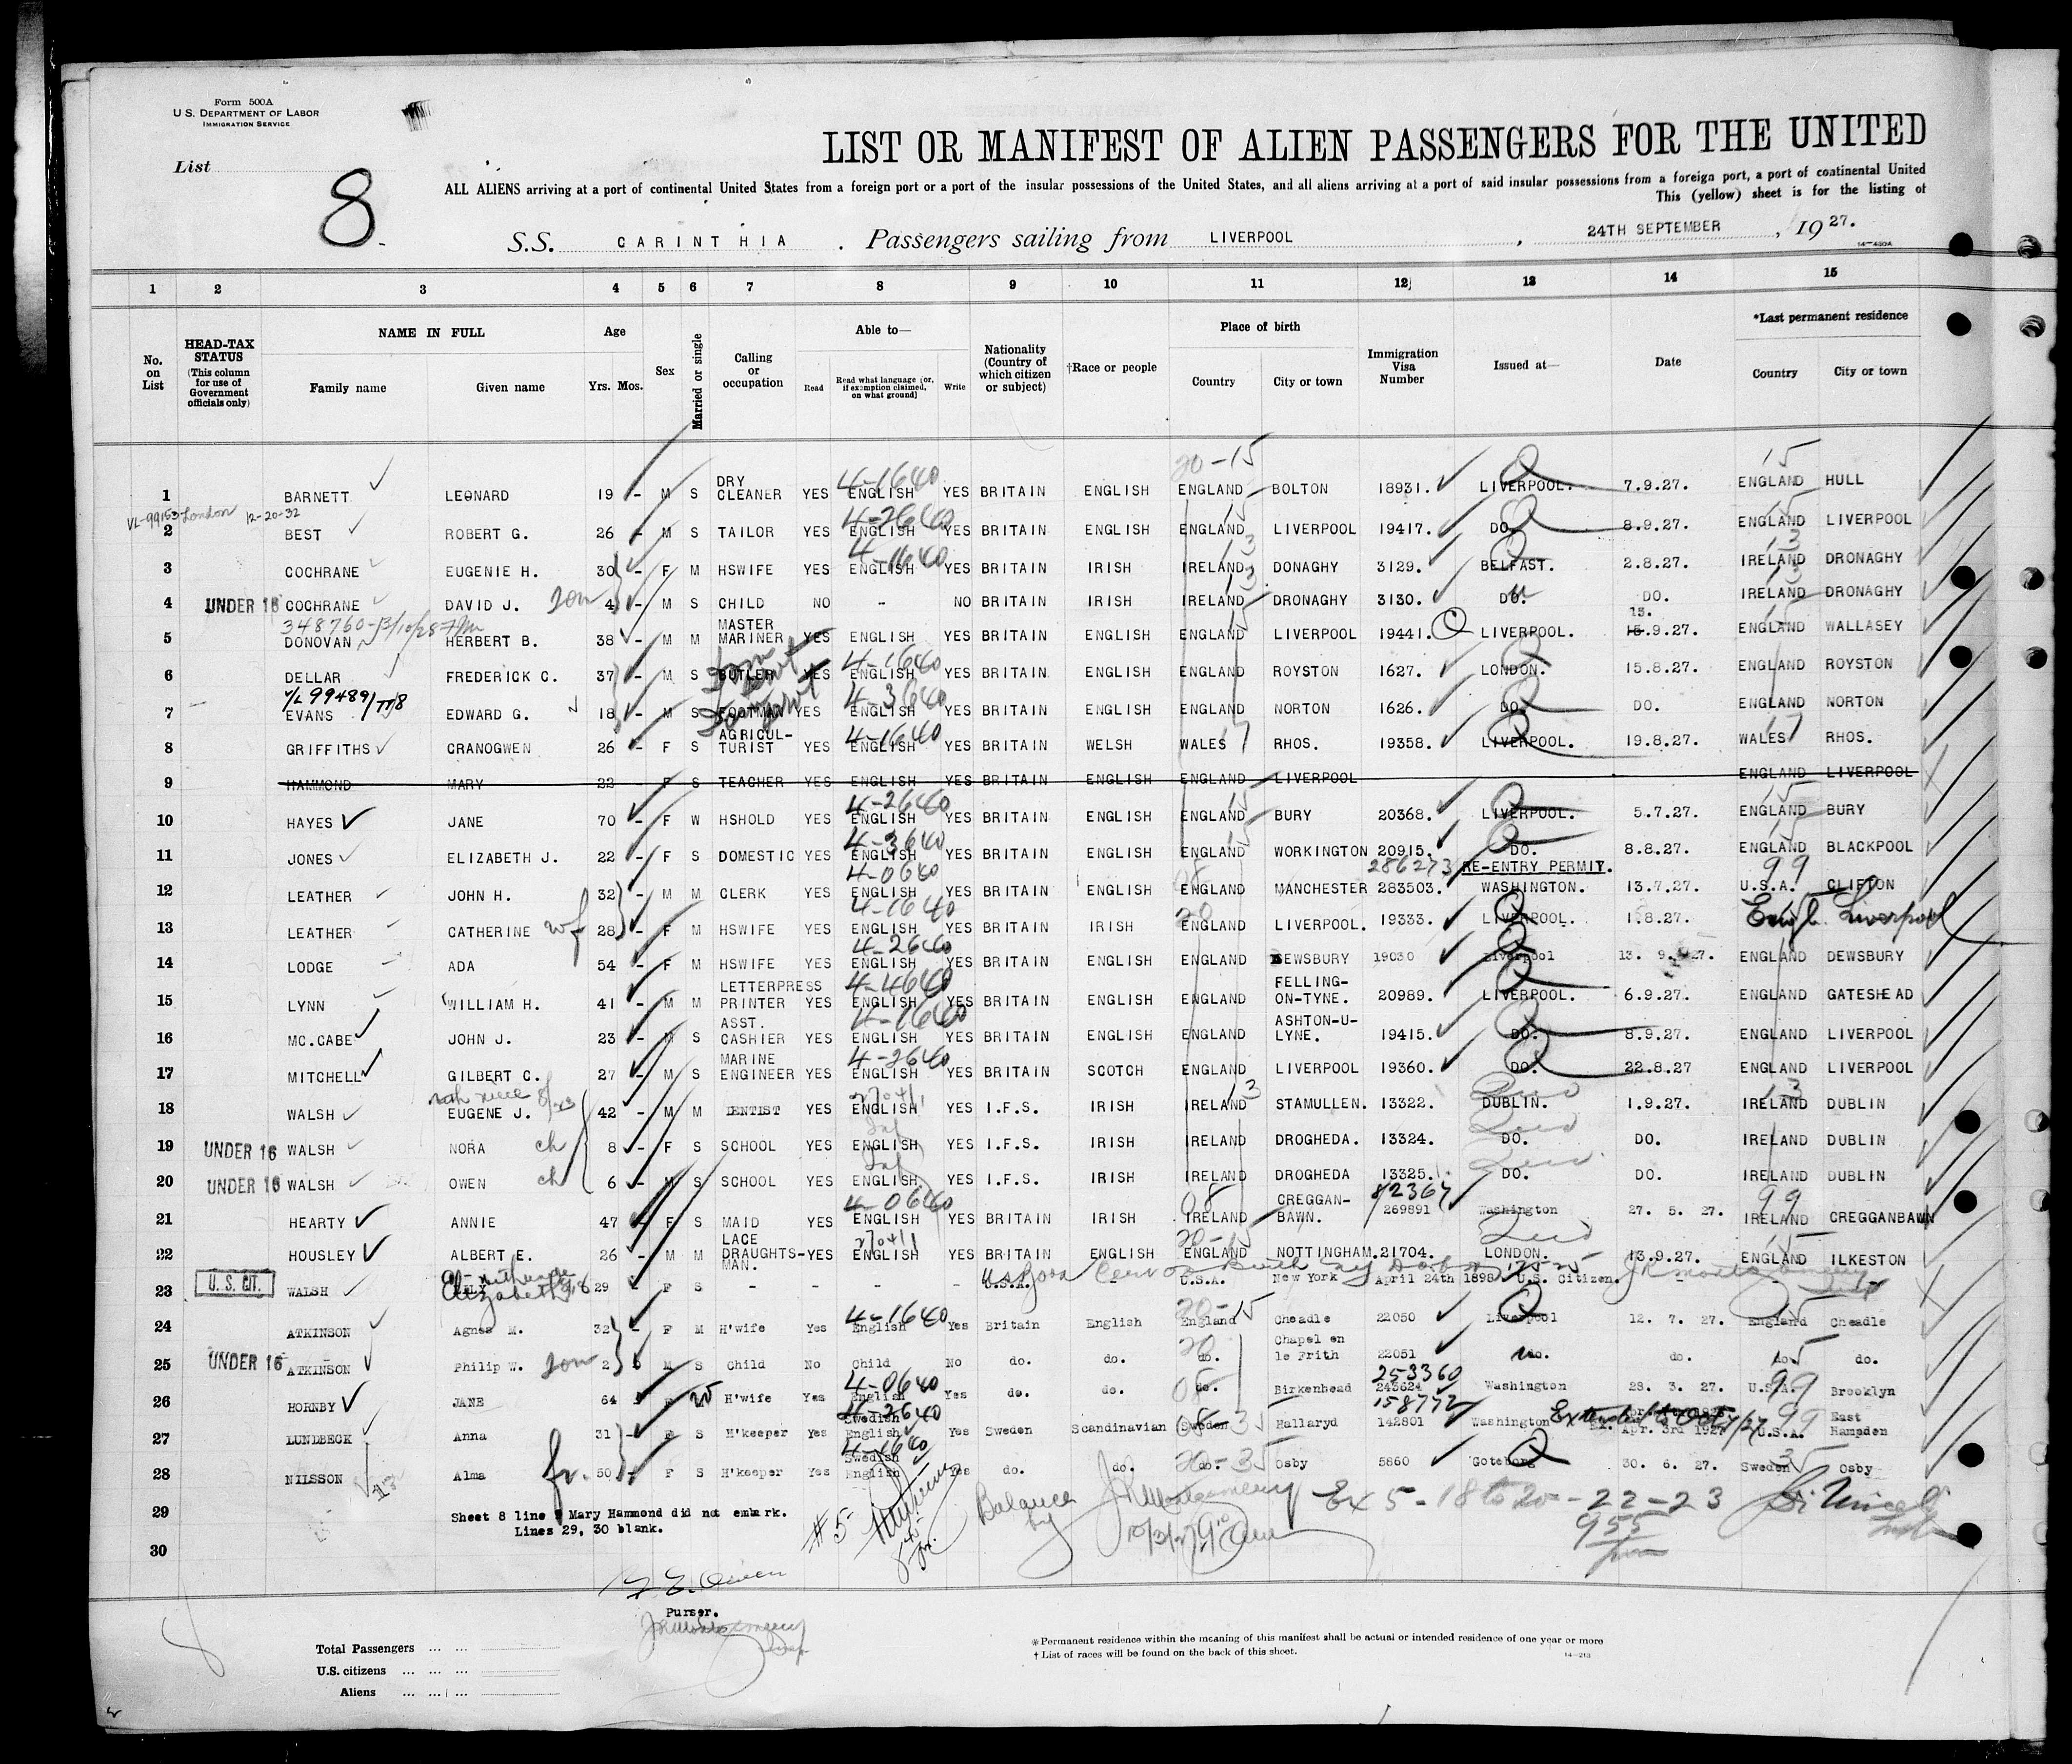 Form 500A
U. S. DEPARTMENT OF LABOR
IMMIGRATION SERVICE
List
8
LIST OR MANIFEST OF ALIEN PASSENGERS FOR THE UNITED
ALL ALIENS arriving at a port of continental United States from a foreign port or a port of the insular possessions of the United States, and all aliens arriving at a port of said insular possessions from a foreign port, a port of continental United
This (yellow) sheet is for the listing of
S.S. CARINTHIA . Passengers sailing from LIVERPOOL , 24TH SEPTEMBER , 19 27.
14—430A
1 2 3 4 5 6 7 8 9 10 11 12 13 14 15
No. on List
HEAD-TAX STATUS (This column for use of Government officials only)
NAME IN FULL
Family name Given name
Age
Yrs. Mos.
Sex
Married or single
Calling or occupation
Able to—
Read Read what language (or, if exemption claimed, on what ground) Write
Nationality (Country of which citizen or subject)
†Race or people
Place of birth
Country City or town
Immigration Visa Number
Issued at—
Date
*Last permanent residence
Country City or town
20-15 15
1 BARNETT LEONARD 19 - M S DRY CLEANER YES 4-1640 ENGLISH YES BRITAIN ENGLISH ENGLAND BOLTON 18931. LIVERPOOL. 7.9.27. ENGLAND HULL
VL-99153 London 12-20-32
2 BEST ROBERT G. 26 - M S TAILOR YES 4-2640 ENGLISH YES BRITAIN ENGLISH ENGLAND LIVERPOOL 19417. DO. 8.9.27. ENGLAND LIVERPOOL
3 COCHRANE EUGENIE H. 30 - F M HSWIFE YES 4-1640 ENGLISH YES BRITAIN IRISH IRELAND DONAGHY 3129. BELFAST. 2.8.27. IRELAND DRONAGHY
4 UNDER 16 COCHRANE DAVID J. son 4 - M S CHILD NO - NO BRITAIN IRISH IRELAND DRONAGHY 3130. DO. DO. IRELAND DRONAGHY
5 DONOVAN HERBERT B. 38 M M MASTER MARINER YES ENGLISH YES BRITAIN ENGLISH ENGLAND LIVERPOOL 19441. LIVERPOOL. 13. .9.27. ENGLAND WALLASEY
6 DELLAR FREDERICK C. 37 - M S BUTLER YES 4-1640 ENGLISH YES BRITAIN ENGLISH ENGLAND ROYSTON 1627. LONDON. 15.8.27. ENGLAND ROYSTON
7 EVANS EDWARD G. 18 - M S FOOTMAN YES 4-3640 ENGLISH YES BRITAIN ENGLISH ENGLAND NORTON 1626. DO. DO. ENGLAND NORTON
8 GRIFFITHS CRANOGWEN 26 - F S AGRICUL-TURIST YES 4-1640 ENGLISH YES BRITAIN WELSH WALES RHOS. 19358. LIVERPOOL. 19.8.27. WALES RHOS.
9 HAMMOND MARY 22 - F S TEACHER YES ENGLISH YES BRITAIN ENGLISH ENGLAND LIVERPOOL ENGLAND LIVERPOOL
10 HAYES JANE 70 - F W HSHOLD YES 4-2640 ENGLISH YES BRITAIN ENGLISH ENGLAND BURY 20368. LIVERPOOL. 5.7.27. ENGLAND BURY
11 JONES ELIZABETH J. 22 - F S DOMESTIC YES 4-3640 ENGLISH YES BRITAIN ENGLISH ENGLAND WORKINGTON 20915. DO. 8.8.27. ENGLAND BLACKPOOL
286273 RE-ENTRY PERMIT. 99
12 LEATHER JOHN H. 32 - M M CLERK YES 4-0640 ENGLISH YES BRITAIN ENGLISH ENGLAND MANCHESTER 283503. WASHINGTON. 13.7.27. U.S.A. CLIFTON
13 LEATHER CATHERINE wf 28 - F M HSWIFE YES 4-1640 ENGLISH YES BRITAIN IRISH ENGLAND LIVERPOOL. 19333. LIVERPOOL. 1.8.27. Engl. Liverpool
14 LODGE ADA 54 - F M HSWIFE YES 4-2640 ENGLISH YES BRITAIN ENGLISH ENGLAND DEWSBURY 19030 Liverpool 13. 9. 27. ENGLAND DEWSBURY
15 LYNN WILLIAM H. 41 - M M LETTERPRESS PRINTER YES 4-4640 ENGLISH YES BRITAIN ENGLISH ENGLAND FELLING-ON-TYNE. 20989. LIVERPOOL. 6.9.27. ENGLAND GATESHEAD
16 MC.CABE JOHN J. 23 - M S ASST. CASHIER YES 4-1640 ENGLISH YES BRITAIN ENGLISH ENGLAND ASHTON-U-LYNE. 19415. DO. 8.9.27. ENGLAND LIVERPOOL
17 MITCHELL GILBERT C. 27 - M S MARINE ENGINEER YES 4-2640 ENGLISH YES BRITAIN SCOTCH ENGLAND LIVERPOOL 19360. DO. 22.8.27 ENGLAND LIVERPOOL
18 WALSH EUGENE J. 42 - M M DENTIST YES ENGLISH YES I.F.S. IRISH IRELAND STAMULLEN. 13322. DUBLIN. 1.9.27. IRELAND DUBLIN
19 UNDER 16 WALSH NORA ch 8 - F S SCHOOL YES ENGLISH YES I.F.S. IRISH IRELAND DROGHEDA. 13324. DO. DO. IRELAND DUBLIN
20 UNDER 16 WALSH OWEN ch 6 - M S SCHOOL YES ENGLISH YES I.F.S. IRISH IRELAND DROGHEDA 13325. DO. DO. IRELAND DUBLIN
21 HEARTY ANNIE 47 - F S MAID YES 4-0640 ENGLISH YES BRITAIN IRISH IRELAND CREGGAN-BAWN. 269891 Washington 27. 5. 27. IRELAND CREGGANBAWN
22 HOUSLEY ALBERT E. 26 - M M LACE DRAUGHTS-MAN. YES ENGLISH YES BRITAIN ENGLISH ENGLAND NOTTINGHAM. 21704. LONDON. 13.9.27. ENGLAND ILKESTON
23 U. S. CIT. WALSH Elizabeth 29 - F S - - - U.S.A. - U.S.A. New York April 24th 1898 U.S. Citizen.
24 ATKINSON Agnes M. 32 F M H'wife Yes 4-1640 English Yes Britain English England Cheadle 22050 Liverpool 12. 7. 27. England Cheadle
25 UNDER 16 ATKINSON Philip W. son 2 M S Child No Child No do. do. do. Chapel en le Frith 22051 do. do. do. do.
253360
26 HORNBY JANE 64 F H'wife Yes 4-0640 English Yes do. do. do. Birkenhead 243624 Washington 28. 3. 27. U.S.A. Brooklyn
158772
27 LUNDBECK Anna 31 - F S H'keeper Yes Swedish English Yes Sweden Scandinavian Sweden Hallaryd 142801 Washington Apr. 3rd 1927 U.S.A. East Hampden
28 NILSSON Alma 50 F S H'keeper Yes Swedish English Yes do. do. do. Osby 5860 Goteborg 30. 6. 27. Sweden Osby
29 Sheet 8 line 9 Mary Hammond did not embark.
Lines 29, 30 blank.
#5 Balance by J R Montgomery Ex 5 - 18 to 20 - 22 - 23
30
Purser.
Total Passengers
U.S. citizens
Aliens
*Permanent residence within the meaning of this manifest shall be actual or intended residence of one year or more
† List of races will be found on the back of this sheet. 14—213